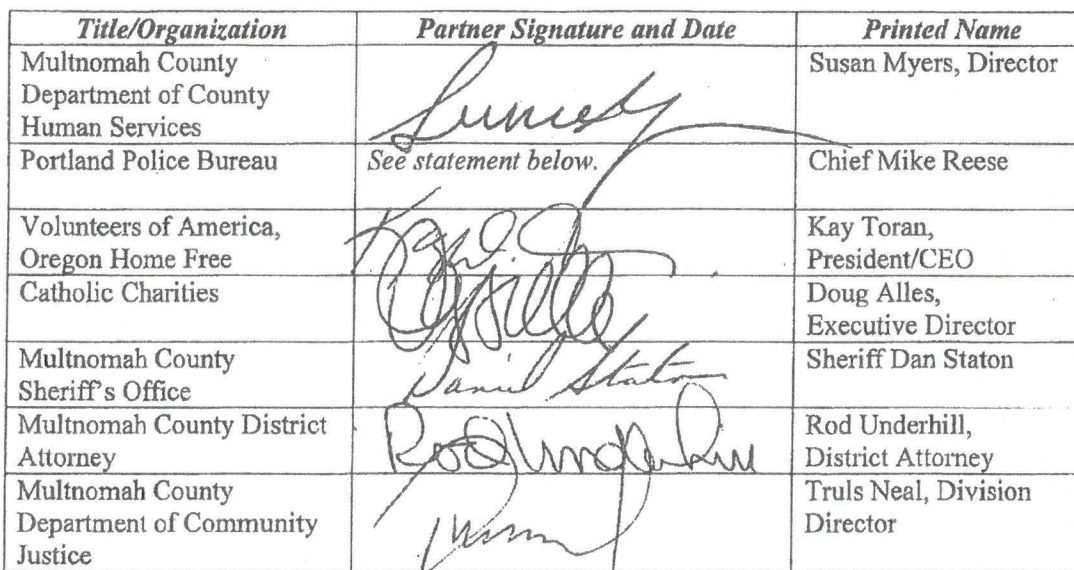 Title/Organization Partner Signature and Date Printed Name
Multnomah County
Department of County
Human Services
Susan Myers, Director
Portland Police Bureau
See statement below.
Chief Mike Reese
Volunteers of America,
Oregon Home Free
Kay Toran,
President/CEO
Catholic Charities
Doug Alles,
Executive Director
Multnomah County
Sheriff's Office
Daniel Staton
Sheriff Dan Staton
Multnomah County District
Attorney
Rod Underhill
Rod Underhill,
District Attorney
Multnomah County
Department of Community
Justice
Truls Neal, Division
Director